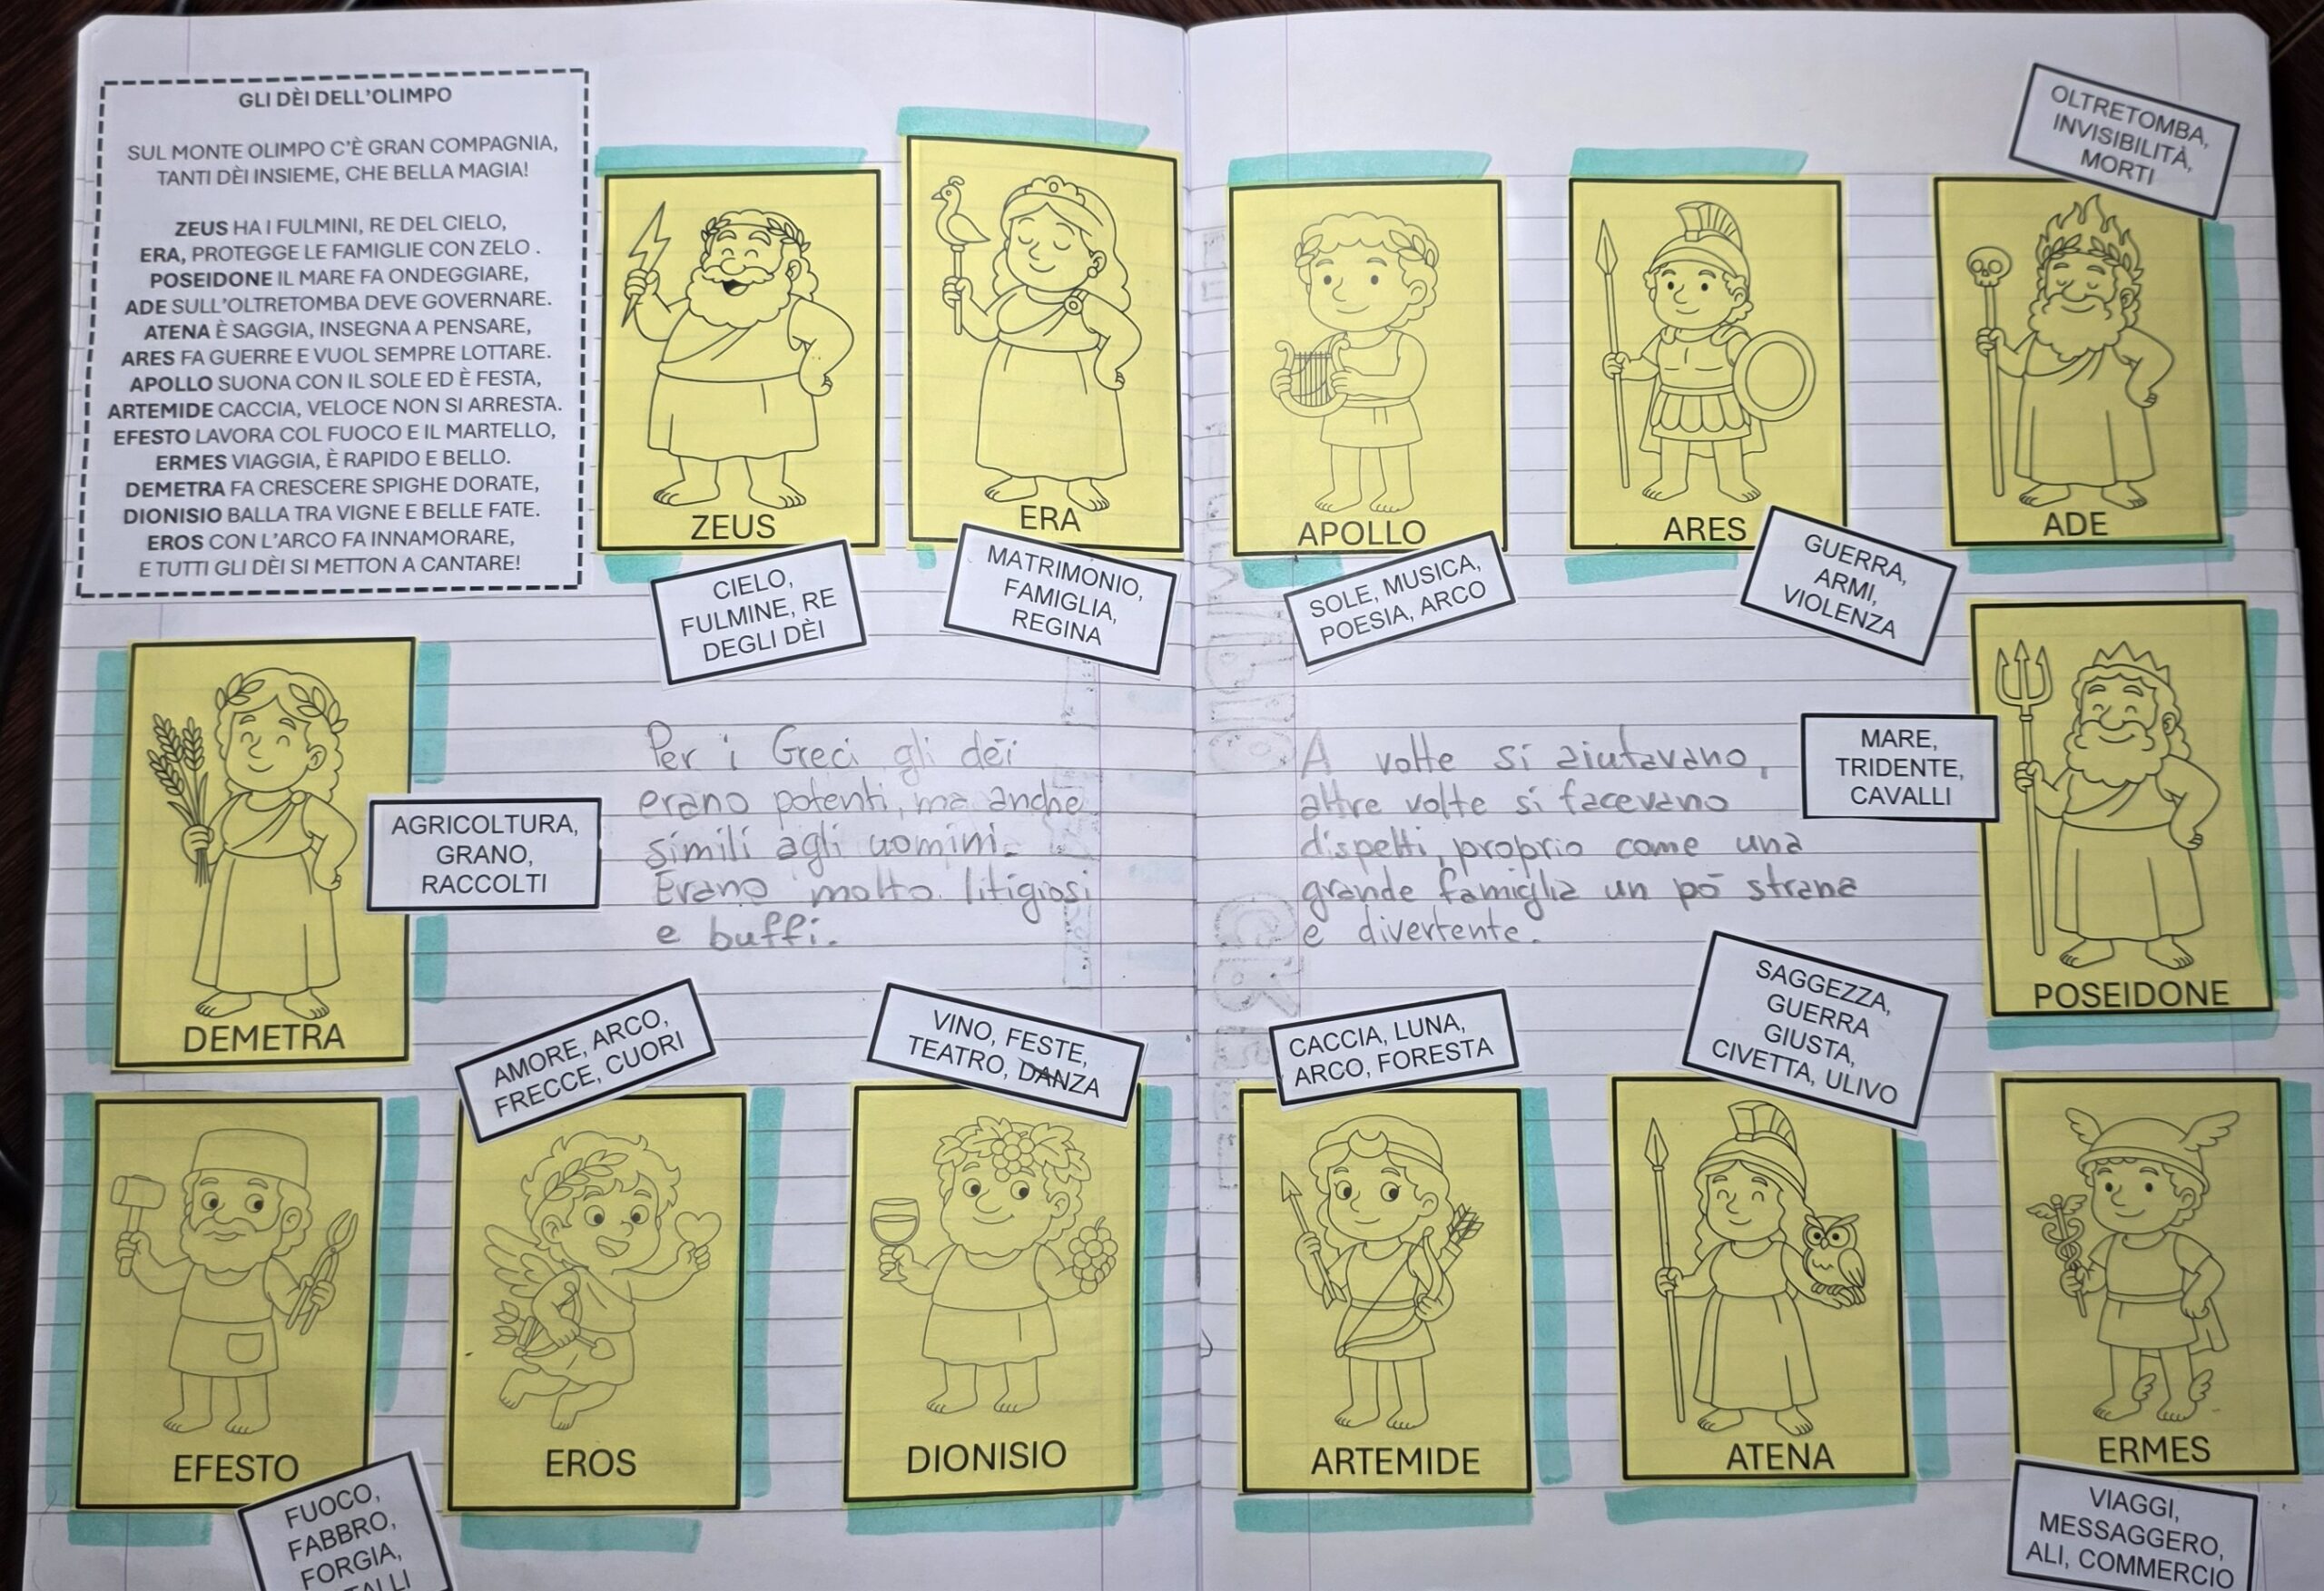 GLI DÈI DELL'OLIMPO
SUL MONTE OLIMPO C'È GRAN COMPAGNIA,
TANTI DÈI INSIEME, CHE BELLA MAGIA!
ZEUS HA I FULMINI, RE DEL CIELO,
ERA, PROTEGGE LE FAMIGLIE CON ZELO .
POSEIDONE IL MARE FA ONDEGGIARE,
ADE SULL'OLTRETOMBA DEVE GOVERNARE.
ATENA È SAGGIA, INSEGNA A PENSARE,
ARES FA GUERRE E VUOL SEMPRE LOTTARE.
APOLLO SUONA CON IL SOLE ED È FESTA,
ARTEMIDE CACCIA, VELOCE NON SI ARRESTA.
EFESTO LAVORA COL FUOCO E IL MARTELLO,
ERMES VIAGGIA, È RAPIDO E BELLO.
DEMETRA FA CRESCERE SPIGHE DORATE,
DIONISIO BALLA TRA VIGNE E BELLE FATE.
EROS CON L'ARCO FA INNAMORARE,
E TUTTI GLI DÈI SI METTON A CANTARE!
ZEUS
CIELO,
FULMINE, RE
DEGLI DÈI
ERA
MATRIMONIO,
FAMIGLIA,
REGINA
DEMETRA
AGRICOLTURA,
GRANO,
RACCOLTI
Per i Greci gli dèi
erano potenti, ma anche
simili agli uomini.
Erano molto litigiosi
e buffi.
EFESTO
FUOCO,
FABBRO,
FORGIA,
AMORE, ARCO,
FRECCE, CUORI
EROS
VINO, FESTE,
TEATRO, DANZA
DIONISIO
APOLLO
SOLE, MUSICA,
POESIA, ARCO
ARES
GUERRA,
ARMI,
VIOLENZA
OLTRETOMBA,
INVISIBILITÀ,
MORTI
ADE
A volte si aiutavano,
altre volte si facevano
dispetti, proprio come una
grande famiglia un pò strana
e divertente.
MARE,
TRIDENTE,
CAVALLI
POSEIDONE
CACCIA, LUNA,
ARCO, FORESTA
ARTEMIDE
SAGGEZZA,
GUERRA
GIUSTA,
CIVETTA, ULIVO
ATENA
ERMES
VIAGGI,
MESSAGGERO,
ALI, COMMERCIO